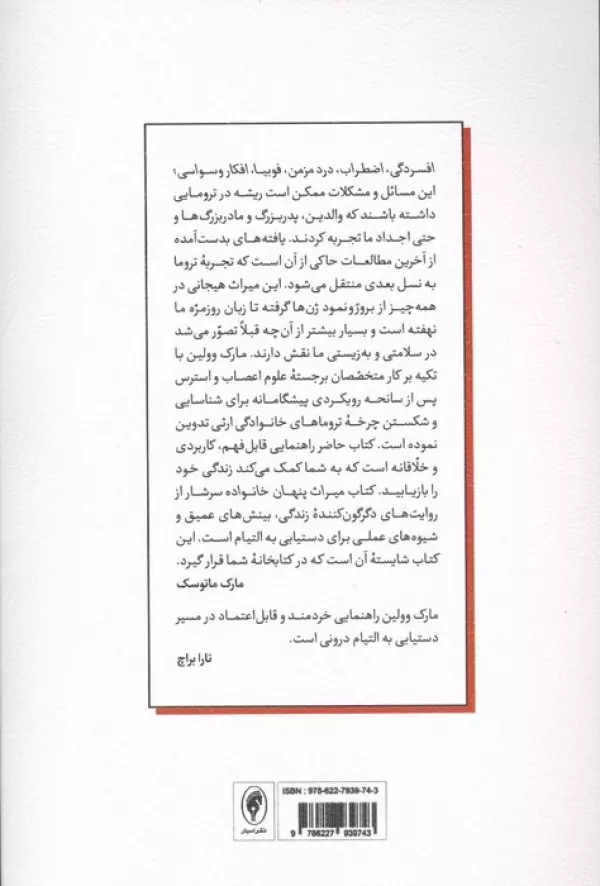 افسردگی، اضطراب، درد مزمن، فوبیا، افکار وسواسی؛
این مسائل و مشکلات ممکن است ریشه در ترومایی
داشته باشند که والدین، پدربزرگ و مادربزرگ‌ها و
حتی اجداد ما تجربه کردند. یافته‌های بدست‌آمده
از آخرین مطالعات حاکی از آن است که تجربهٔ تروما
به نسل بعدی منتقل می‌شود. این میراث هیجانی در
همه‌چیز از بروز و نمود ژن‌ها گرفته تا زبان روزمرّه ما
نهفته است و بسیار بیشتر از آن‌چه قبلاً تصوّر می‌شد
در سلامتی و به‌زیستی ما نقش دارند. مارک وولین با
تکیه بر کار متخصّصان برجستهٔ علوم اعصاب و استرس
پس از سانحه رویکردی پیشگامانه برای شناسایی
و شکستن چرخهٔ تروماهای خانوادگی ارثی تدوین
نموده است. کتاب حاضر راهنمایی قابل‌فهم، کاربردی
و خلّاقانه است که به شما کمک می‌کند زندگی خود
را بازیابید. کتاب میراث پنهان خانواده سرشار از
روایت‌های دگرگون‌کنندهٔ زندگی، بینش‌های عمیق و
شیوه‌های عملی برای دستیابی به التیام است. این
کتاب شایستهٔ آن است که در کتابخانهٔ شما قرار گیرد.
مارک ماتوسک
مارک وولین راهنمایی خردمند و قابل‌اعتماد در مسیر
دستیابی به التیام درونی است.
تارا براچ
ISBN : 978-622-7939-74-3
9 786227 939743
نشر اسبار